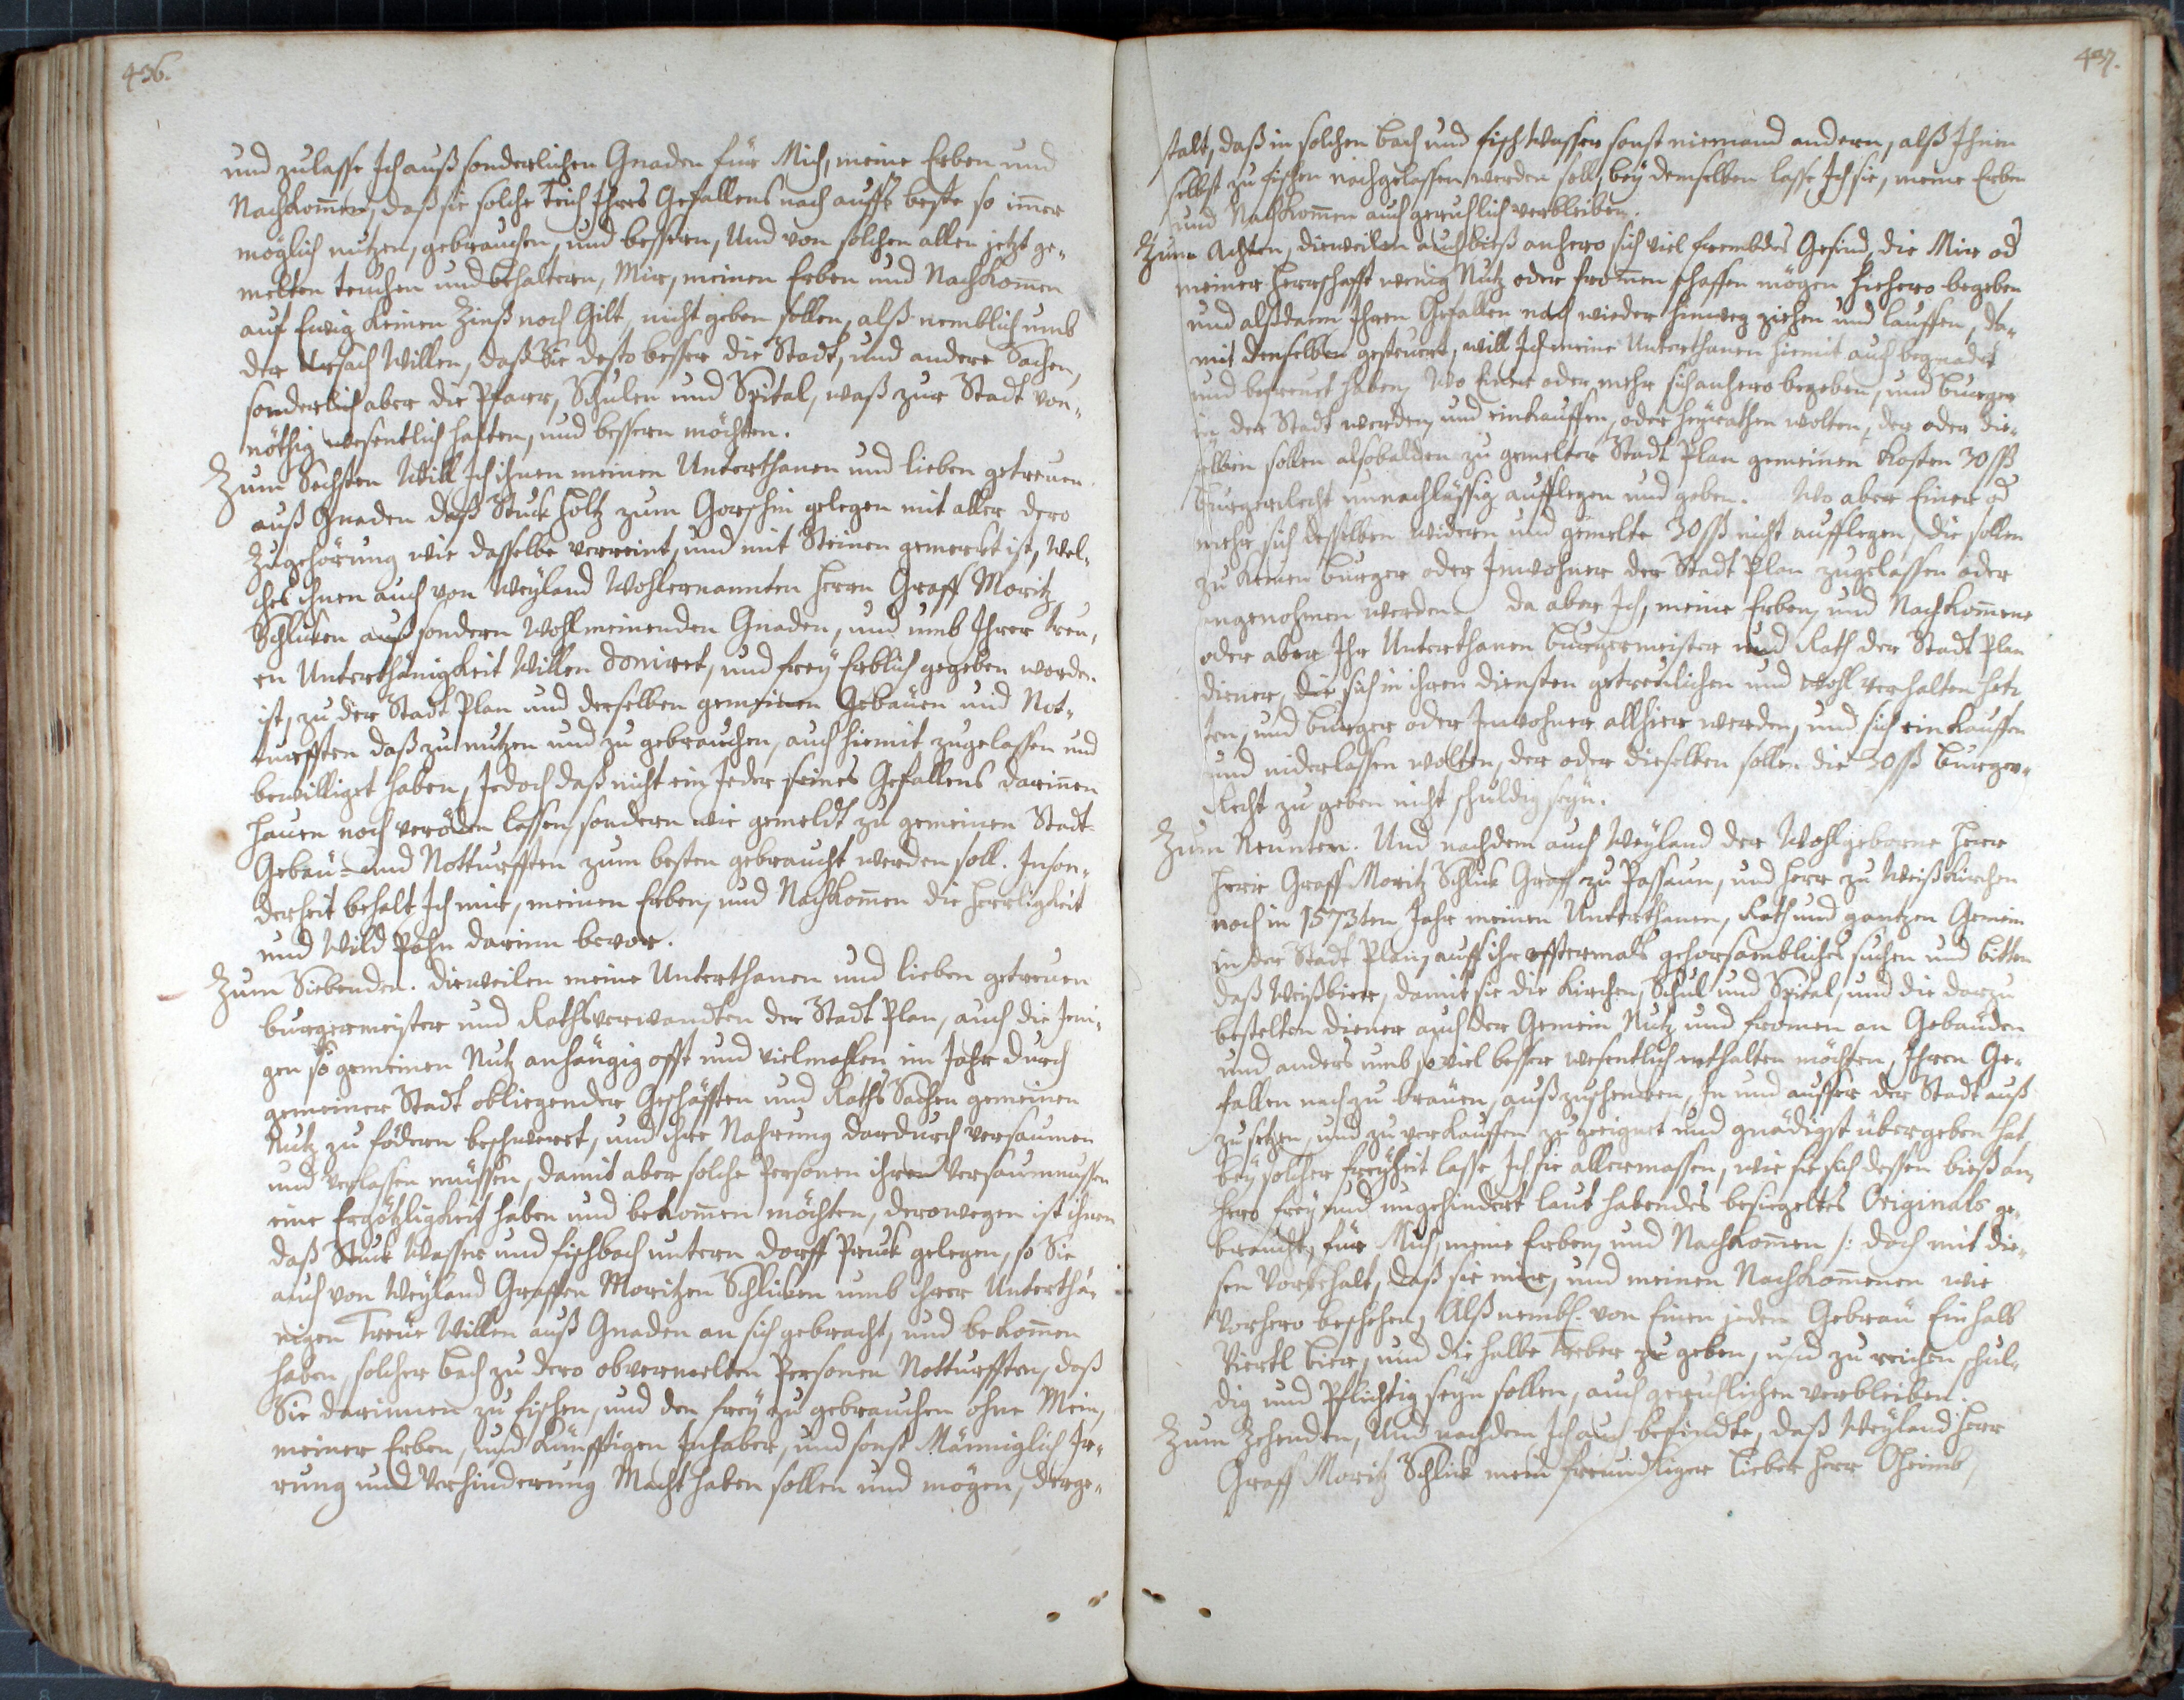 436.
und zulasse Ich auß sonderlichen Gnaden für Mich, meine Erben und
Nachkom̄en, daß sie solche Teich Ihres Gefallens nach auffs beste so im̄er
möglich nutzen, gebrauchen, und bessern, Und von solchen allen jetzt ge-
melten teuchen und behaltern, Mir, meinen Erben und Nachkom̄en
auf Ewig keinen Zinß noch Gilt, nicht geben sollen, alß nemblich umb
der Ursach Willen, daß Sie desto besser die Stadt, und andere Sachen,
sonderlich aber die Pfarr, Schulen und Spital, waß zur Stadt von-
nöthig wesentlich halten, und bessern möchten.
Zum Sechsten Will Ich ihnen meinen Unterthanen und lieben getreuen
auß Gnaden daß Stuck Holtz zum Gorschin gelegen mit aller dero
Zugehörung wie dasselbe verreint, und mit Steinen gemerckt ist, Wel-
ches ihnen auch von Weyland Wohlernannten Herrn Graff Moritz
Schlicken auß sondern Wohlmeinenden Gnaden, und umb Ihrer treu-
en Unterthänigkeit Willen doniret, und frey Erblich gegeben worden
ist, zu der Stadt Plan und derselben gemeinen Gebäuen und Not-
turfften daß zu nutzen und zu gebrauchen, auch hiemit zugelassen und
bewilliget haben, Jedoch daß nicht ein Jeder seines Gefallens darin̄en
hauen noch veröden lassen, sondern wie gemeldt zu gemeinen Stadt-
Gebäu- und Notturfften zum besten gebraucht werden soll. Inson-
derheit behalt Ich mir, meinen Erben, und Nachkom̄en die Herrligkeit
und Wild Pahn darinn bevor.
Zum Siebenden. dieweilen meine Unterthanen und lieben getreuen
burgermeister und Rathsverwandten der Stadt Plan, auch die Jeni-
gen so gemeinen Nutz anhängig offt und vielmahlen im Jahr durch
gemeiner Stadt obliegender Geschäfften und Raths Sachen gemeinen
Nutz zu födern beschwert, und ihre Nahrung dardurch versaumen
und verlassen müssen, damit aber solche Personen ihren Versaumnussen
eine Ergötzligkeit haben und bekom̄en möchten, derowegen ist ihnen
daß Stuck Wasser und fischbach untern dorff Pruck gelegen, so Sie
auch von Weyland Graffen Moritzen Schlicken umb ihrer Unterthä-
nigen Treue Willen auß Gnaden an sich gebracht, und bekom̄en
haben, solcher bach zu dero obvermelten Personen Notturfften, daß
Sie darinnen zu fischen, und den frey zu gebrauchen ohne Mein,
meiner Erben, und künfftigen Inhaber, und sonst Männiglich Ir-
rung und Verhinderung Macht haben sollen und mögen, derge-
437.
stalt, daß in solchen bach und fisch Wasser sonst niemand andern, alß Ihnen
selbst zu fischen nachgelassen werden soll, bey demselben lasse Ich sie, meine Erben
und Nachkom̄en auch geruhlich verbleiben.
Zum Achten, dieweilen auch bieß anhero sich viel frembdes Gesind, die Mir od
meiner Herrschafft wenig Nutz oder from̄en schaffen mögen hiehero begeben
und alßdann Ihren Gefallen nach wieder hinweg ziehen und lauffen, da-
mit denselben gesteuert, will Ich meine Unterthanen hiemit auch begnadet
und befreuet haben, Wo einer oder mehr sich anhero begeben, und burger
in der Stadt werden, und einkauffen, oder heyrathen wolten, der oder die-
selben sollen alsobalden zu gemelter Stadt Plan gemeinen Kosten 30 ſß
burgerrecht unnachlässig aufflegen und geben. Wo aber Einer od
mehr sich desselben widern und gemelte 30 ſß nicht aufflegen, die sollen
zu keinen burger oder Inwohner der Stadt Plan zugelassen oder
angenohmen werden. da aber Ich, meine Erben, und Nachkom̄ene
oder aber Ihr Unterthanen burgermeister und Rath der Stadt Plan
diener, die sich in ihren diensten getreulichen und wohl verhalten het-
ten, und burger oder Inwohner allhier werden, und sich einkauffen
und niderlassen wolten, der oder dieselben sollen die 30 ſß burger-
Recht zu geben nicht schuldig seyn.
Zum Neunten. Und nachdem auch Weyland der Wohlgeborne Herr
Herr Graff Moritz Schlick Graff zu Passaun, und Herr zu Weißkirchen
noch in 1573ten Jahr meinen Unterthanen, Rath und gantzen Gemein
in der Stadt Plan, auff ihr offtermals gehorsambliches suchen und bitten
daß Weißbier, damit sie die Kirchen, Schul und Spital, und die darzu
bestelten diener auch der Gemein Nutz und from̄en an Gebäuden
und anders umb so viel besser wesentlich erhalten möchten, Ihren Ge-
fallen nach zu bräuen, außzuschencken, In und ausser der Stadt auß
zu setzen, und zu verkauffen zugeeignet und gnädigst übergeben hat,
bey solcher freyheit lasse Ich sie allermassen, wie sie sich dessen bieß an-
hero frey und ungehindert laut habendes besiegeltes Originals ge-
braucht, für Mich, meine Erben, und Nachkom̄en /: doch mit die-
sen Vorbehalt, daß sie mir, und meinen Nachkom̄enen wie
Vorhero beschehen, Alß nembl: von Einen jeden Gebräu Ein halb
Viertl bier, und die halbe Treber zu geben, und zu reichen schul-
dig und Pflichtig seyn sollen, auch geruhlichen verbleiben.
Zum Zehenden, Und nachdem Ich auch befindte, daß Weyland Herr
Graff Moritz Schlick mein freundtliger lieber Herr Oheimb,